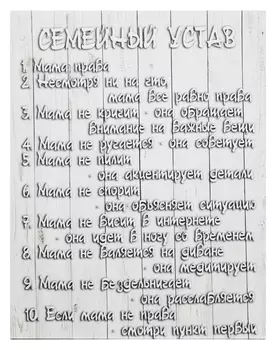 СЕМЕЙНЫЙ УСТАВ
1. Мама права
2. Несмотря ни на что,
мама все равно права
3. Мама не кричит - она обращает
внимание на важные вещи
4. Мама не ругается - она советует
5. Мама не пилит -
она акцентирует детали
6. Мама не спорит -
она объясняет ситуацию
7. Мама не висит в интернете
- она идет в ногу со временем
8. Мама не валяется на диване
- она медитирует
9. Мама не бездельничает
- она расслабляется
10. Если мама не права
- смотри пункт первый